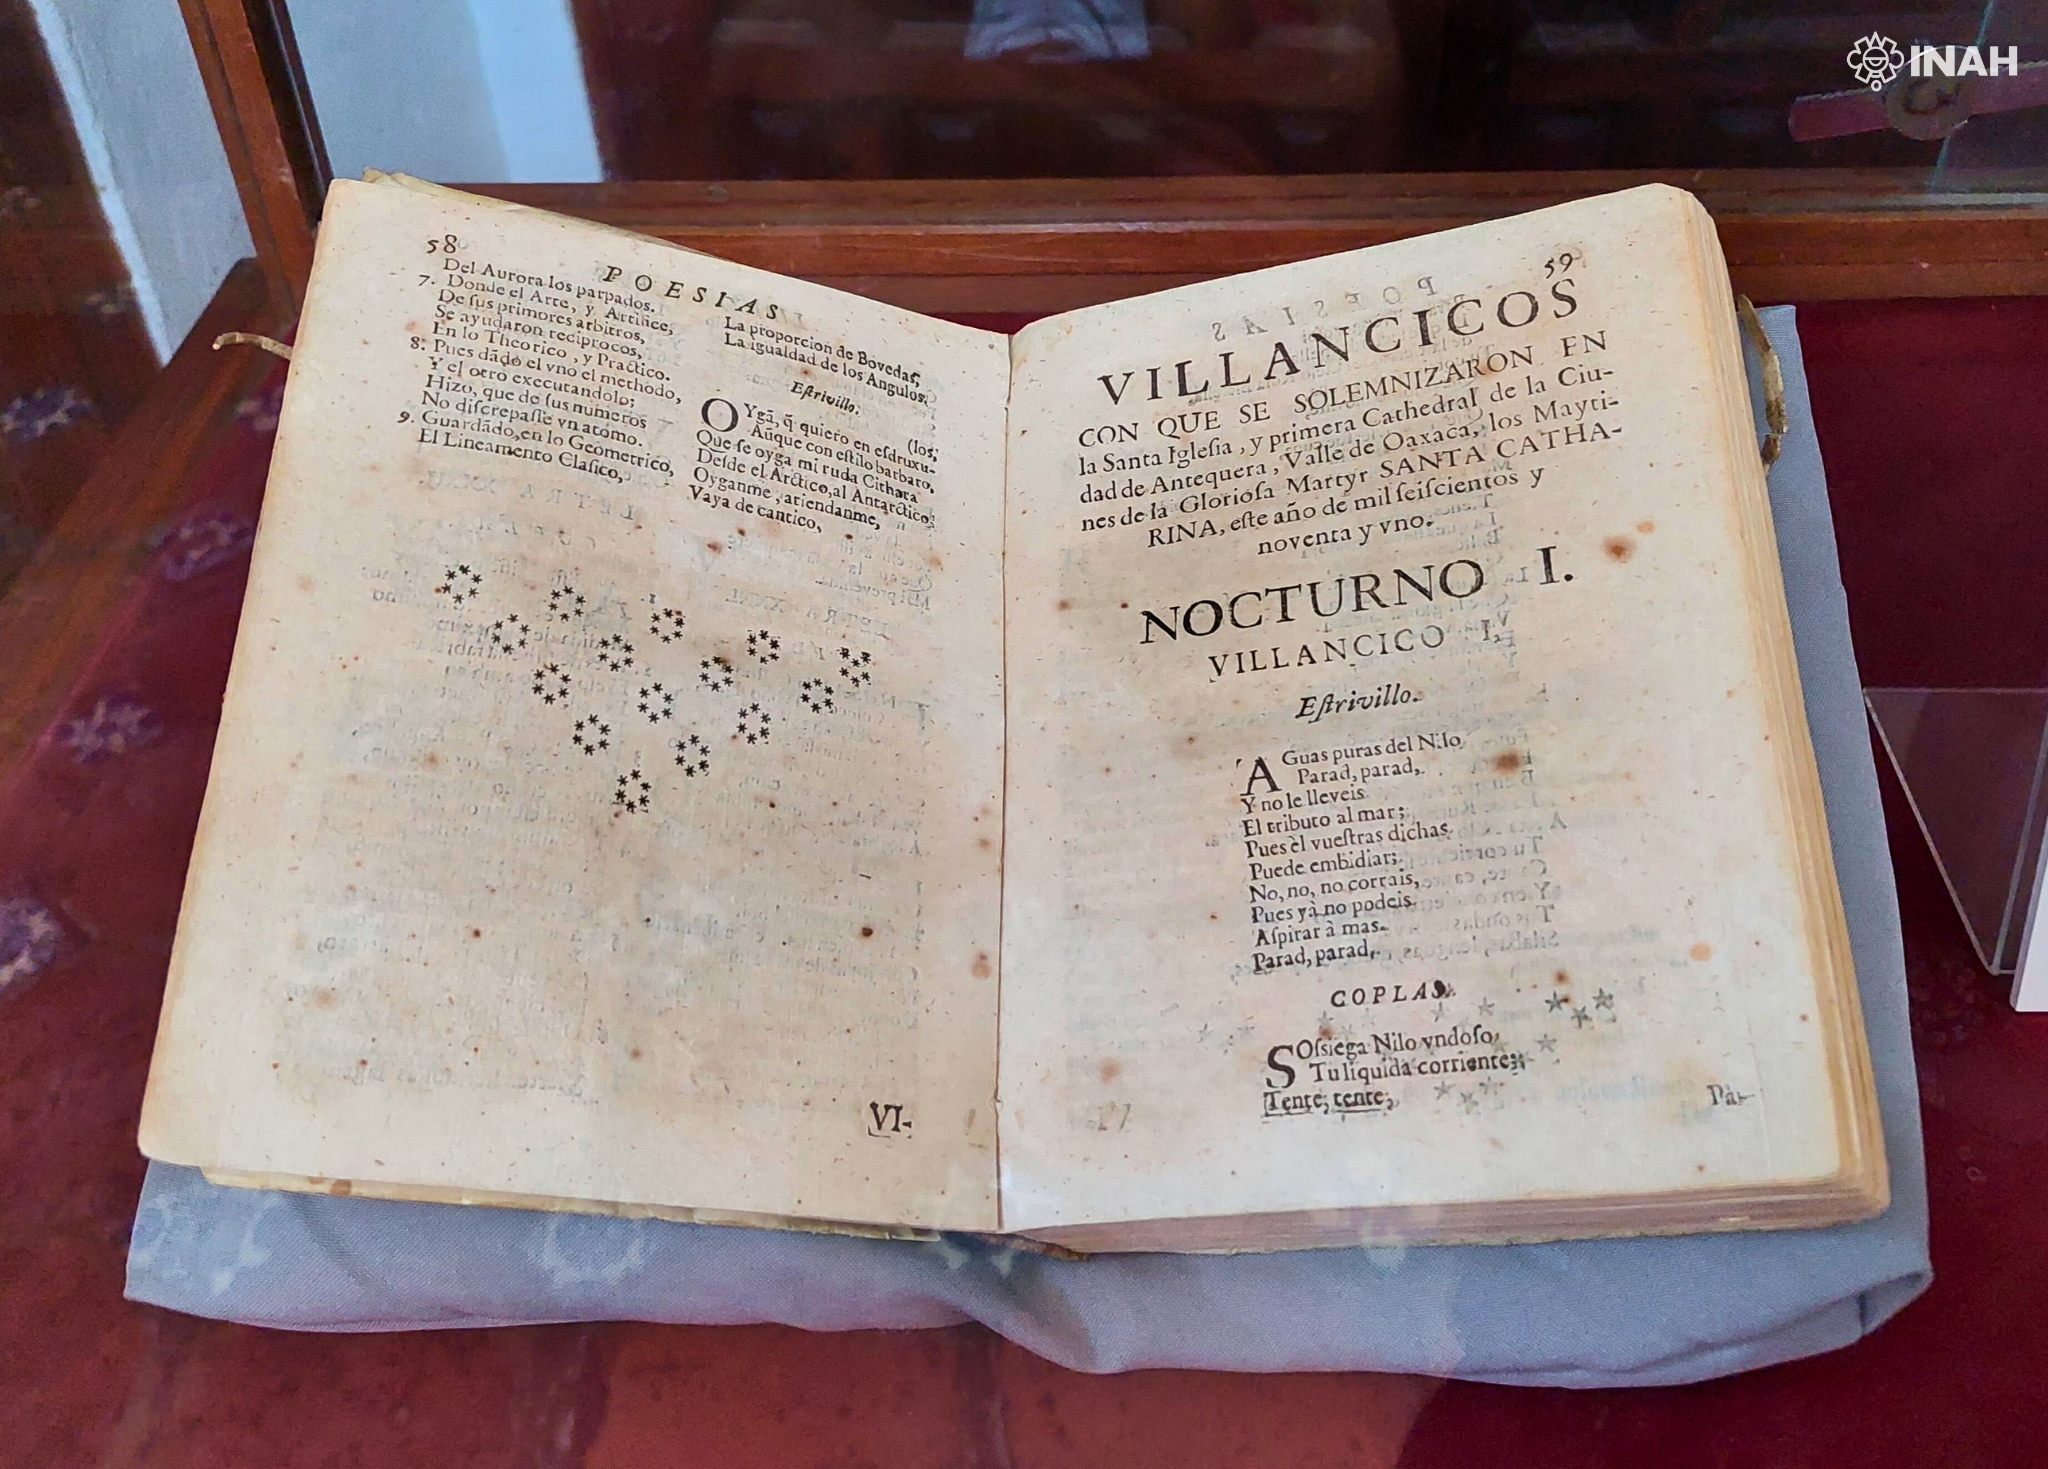 INAH
58
POESIAS
Del Aurora los parpados.
7. Donde el Arte, y Artifice,
De ſus primores arbitros,
Se ayudaron reciprocos,
En lo Theorico, y Practico.
8. Pues dādo el vno el methodo,
Y el otro executandolo;
Hizo, que de ſus numeros
No diſcrepaſſe vn atomo.
9. Guardādo, en lo Geometrico,
El Lineamento Claſico,
La proporcion de Bovedas,
La igualdad de los Angulos.
Eſtrivillo.
OYgā, q̄ quiero en eſdruxu-
(los,
Aūque con eſtilo barbaro,
Que ſe oyga mi ruda Cithara
Deſde el Arctico, al Antarctico,
Oyganme, atiendanme,
Vaya de cantico,
VI-
59
VILLANCICOS
CON QUE SE SOLEMNIZARON EN
la Santa Igleſia, y primera Cathedral de la Ciu-
dad de Antequera, Valle de Oaxaca, los Mayti-
nes de la Glorioſa Martyr SANTA CATHA-
RINA, eſte año de mil ſeiſcientos y
noventa y vno.
NOCTURNO I.
VILLANCICO I.
Eſtrivillo.
AGuas puras del Nilo
Parad, parad,
Y no le lleveis
El tributo al mar;
Pues èl vueſtras dichas
Puede embidiar;
No, no, no corrais,
Pues yà no podeis
Aſpirar à mas.
Parad, parad.
COPLAS.
SOſsiega Nilo vndoſo,
Tu liquida corriente;
Tente, tente,
Pà-